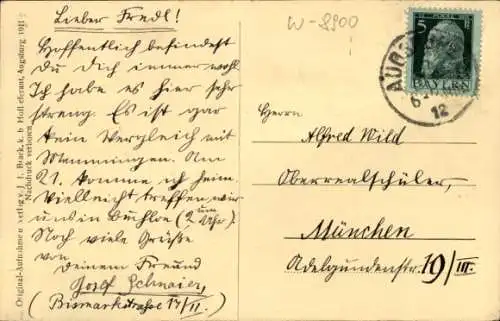 Lieber Fredl!
Hoffentlich befindest
Du dich immer wohl.
Ich habe es hier sehr
streng. Es ist gar
kein Vergleich mit
Memmingen. Am
21. komme ich heim.
Vielleicht treffen wir
uns in Buchloe (2 um Uhr).
Noch viele Grüße
von
deinem Freund
Josef Schnaier
(Bismarkstraße 17/II.)
Original-Aufnahmen Verlag v. J. L. Brack, k. b. Hoflieferant, Augsburg. 1911
Nachdruck verboten.
W-8900
5 Pf
BAYERN
AUGS
12
Herrn
Alfred Wild
Oberrealschüler,
München
Adelgundenstr. 19/III.